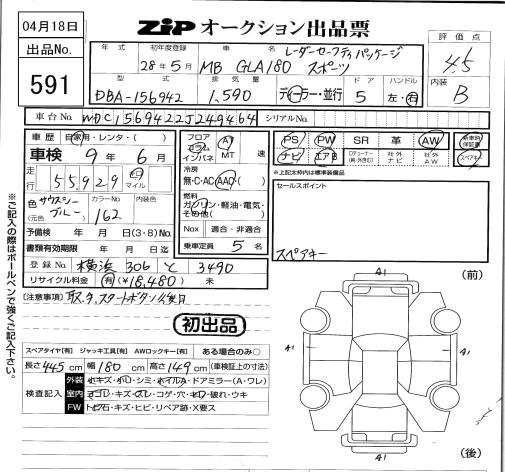 04月18日
出品No.
591
ZiP オークション出品票
評価点
4.5
内装
B
年式
初年度登録
28年5月
車名
MB GLA180
レーダーセーフティパッケージ
スポーツ
型式
DBA-156942
排気量
1,590
ディーラー・並行
ドア
5
ハンドル
左・右
車台No.
WDC1569422J249464
シリアルNo.
車歴 自家用・レンタ・( )
車検 9年 6月
走行 55,929 km マイル
色 サウスシーブルー
(元色)
カラーNo.
162
内装色
予備検 年 月 日(3・8)No.
書類有効期限 年 月 日迄
登録No. 横浜 306 と 3490
リサイクル料金 有(¥18,480) 未
フロア
コラム
インパネ
AT
MT 速
冷房
無・C・AC・AAC・( )
燃料
ガソリン・軽油・電気・
その他( )
Nox 適合・非適合
乗車定員 5 名
PS PW SR 革 AW
ナビ エアB
社外ナビ
社外AW
新車時保証書
スペアキー
※上記太枠内は標準装備品
セールスポイント
スペアキー
(注意事項) 取, タ, スタートボタン
初出品
スペアタイヤ[有] ジャッキ工具[有] AWロックキー[有] ある場合のみ○
長さ445cm 幅180cm 高さ149cm (車検証上の寸法)
検査記入
外装 小キズ・小凹・シミ・ホイルA・ドアミラー(A・ワレ)
室内 ヨゴレ・キズ・スレ・コゲ・穴・凹・破れ・ウキ
FW トビ石・キズ・ヒビ・リペア跡・X要ス
(前)
A1
A1
A1
A1
(後)
※ご記入の際はボールペンで強くご記入下さい。